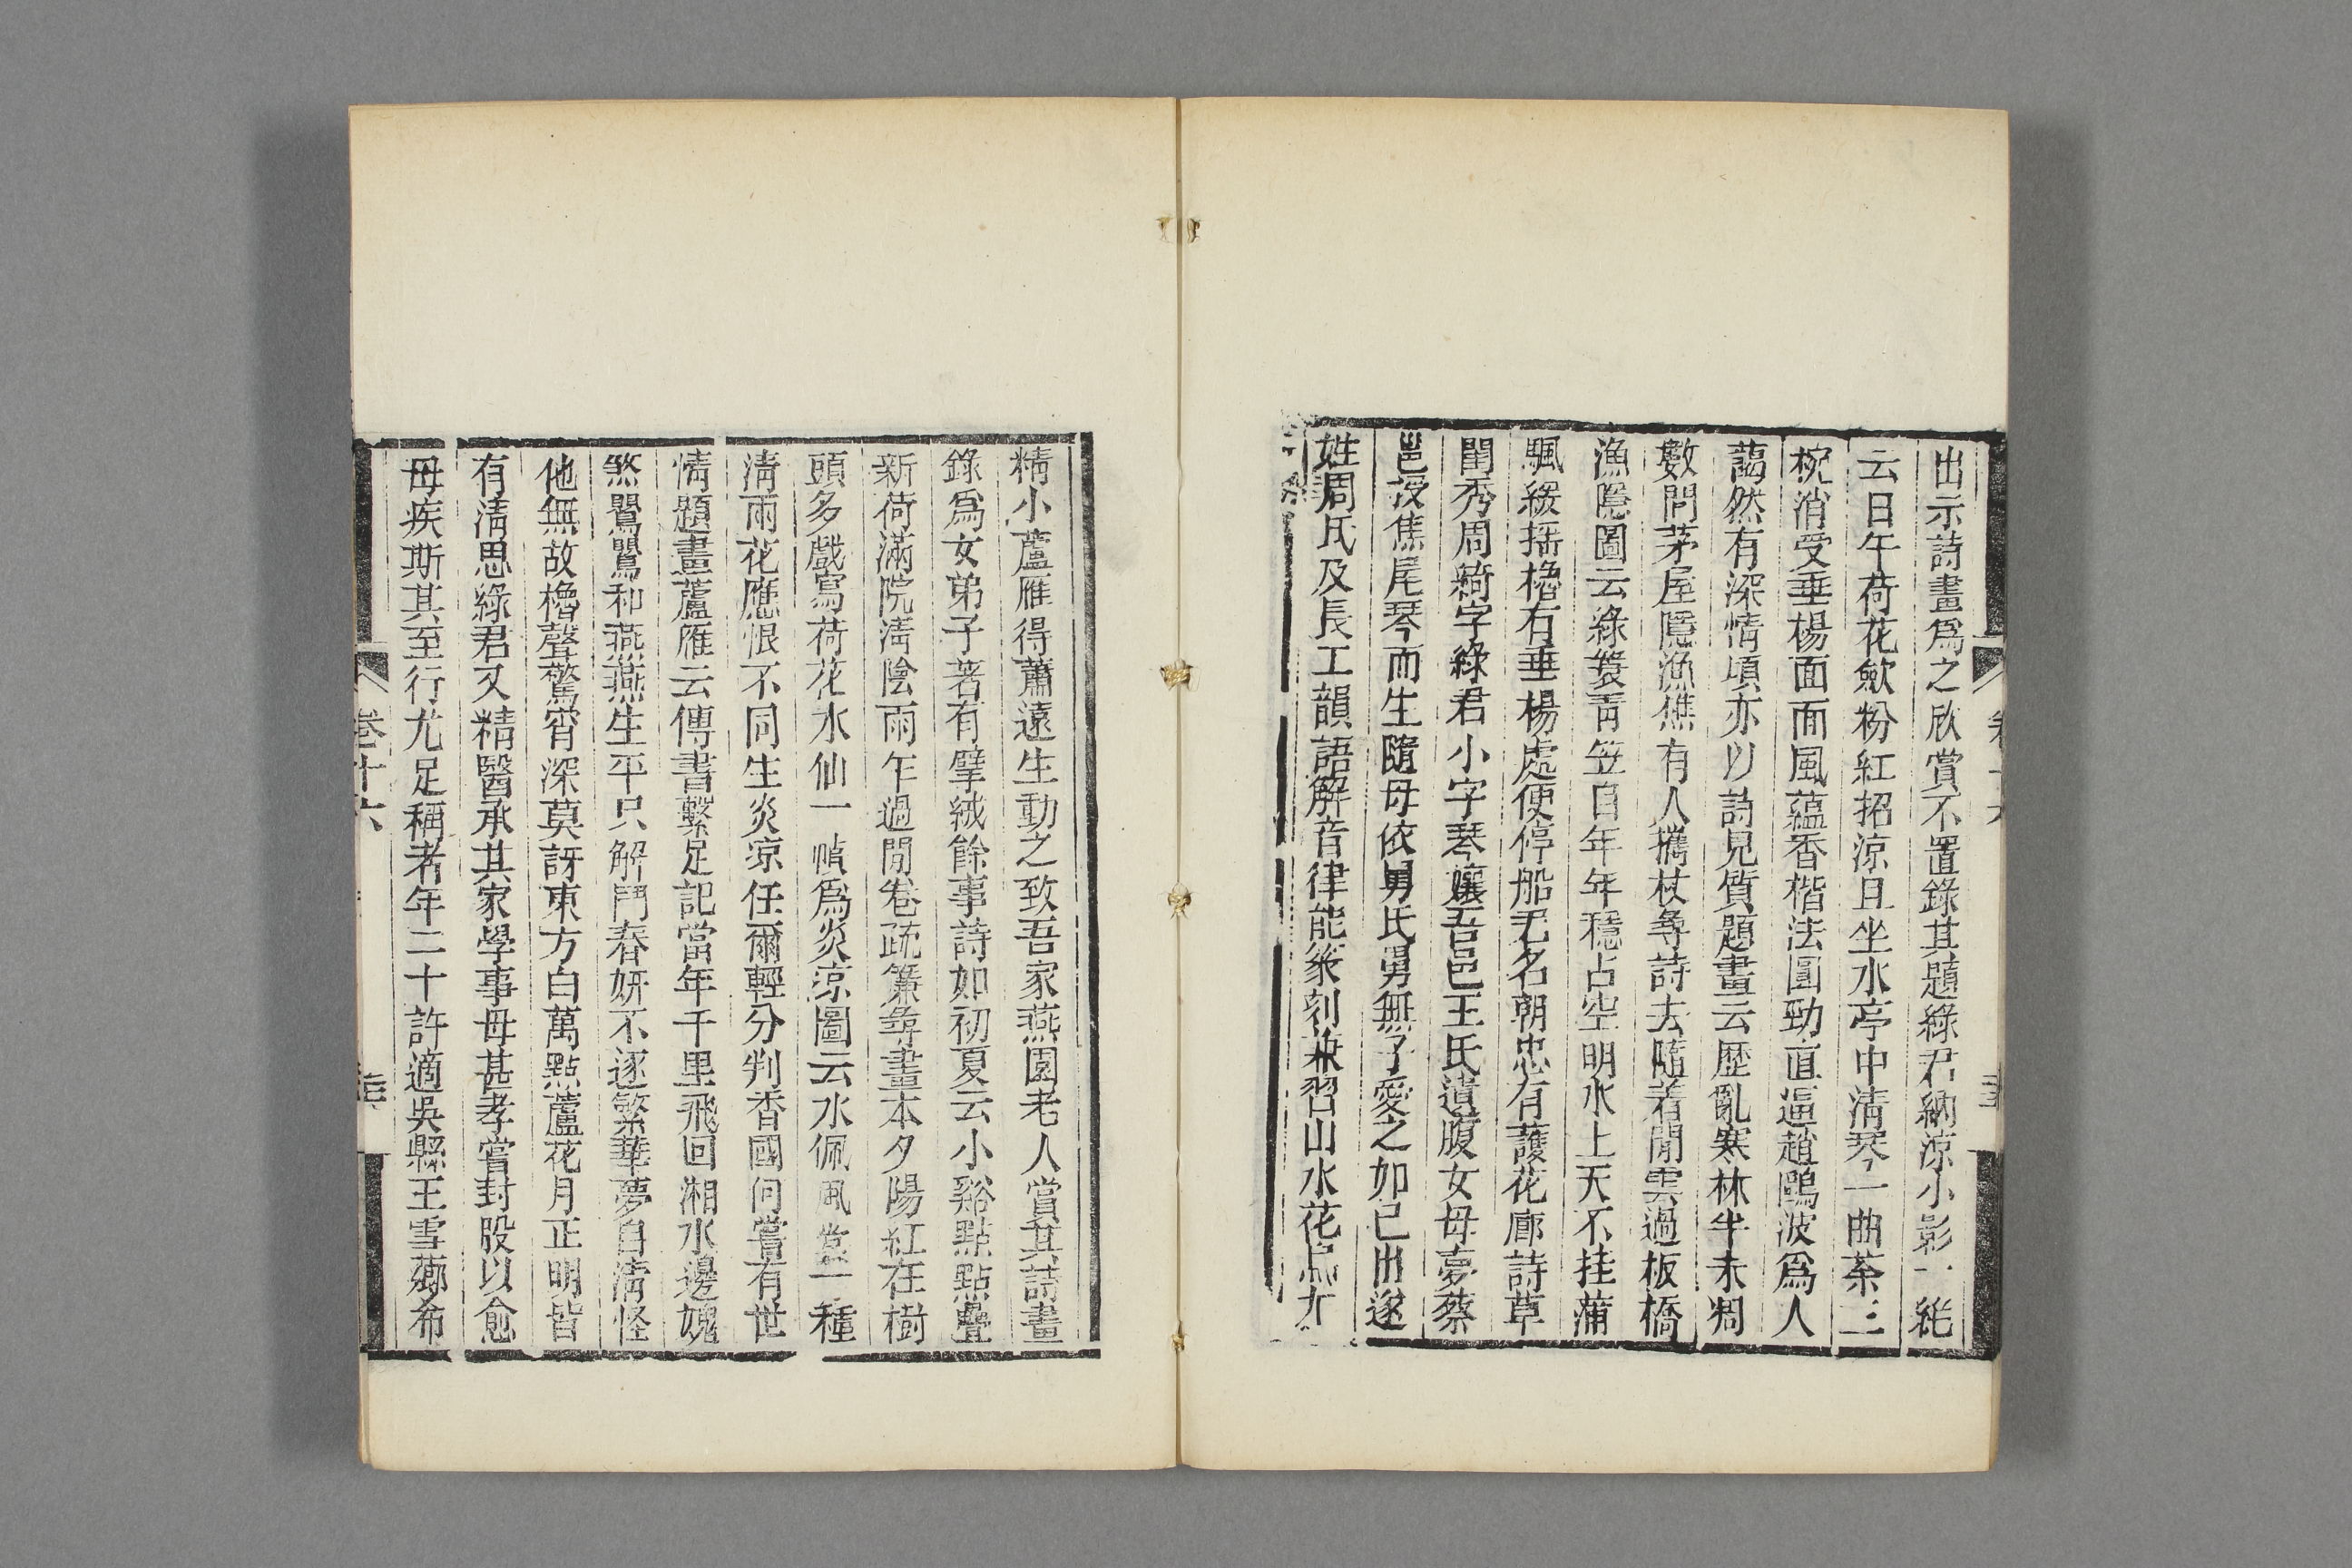 出示詩畫爲之欣賞不置錄其題綠君納涼小影一絶
云日午荷花歛粉紅招涼且坐水亭中清琴一曲茶三
椀消受垂楊面面風蘊香楷法圓勁直逼趙鷗波爲人
藹然有深情頃亦以詩見質題畫云歷亂寒林半未凋
數間茅屋隱漁樵有人攜杖尋詩去隨着閒雲過板橋
漁隱圖云綠簑靑笠自年年穩占空明水上天不挂蒲
颿緩揺櫓右垂楊處便停船旡名朝忠有護花廊詩草
閨秀周綺字綠君小字琴孃吾邑王氏遺腹女母夢蔡
邕授焦尾琴而生隨母依舅氏舅無子愛之如已出遂
姓周氏及長工韻語解音律能篆刻兼習山水花鳥尤
精小蘆雁得蕭遠生動之致吾家燕園老人賞其詩畫
錄爲女弟子著有擘絨餘事詩如初夏云小谿點點疊
新荷滿院淸陰雨乍過閒卷疏簾尋畫本夕陽紅在樹
頭多戲寫荷花水仙一幀爲炎凉圖云水佩風裳一種
淸雨花應恨不同生炎凉任爾輕分判香國何嘗有世
情題畫蘆雁云傳書繫足記當年千里飛回湘水邊媿
煞鸎鸎和燕燕生平只解鬥春妍不逐繁華夢自淸怪
他無故櫓聲驚宵深莫訝東方白萬點蘆花月正明皆
有淸思綠君又精醫承其家學事母甚孝嘗封股以愈
母疾斯其至行尤足稱者年二十許適吳縣王雪薌希
卷十六